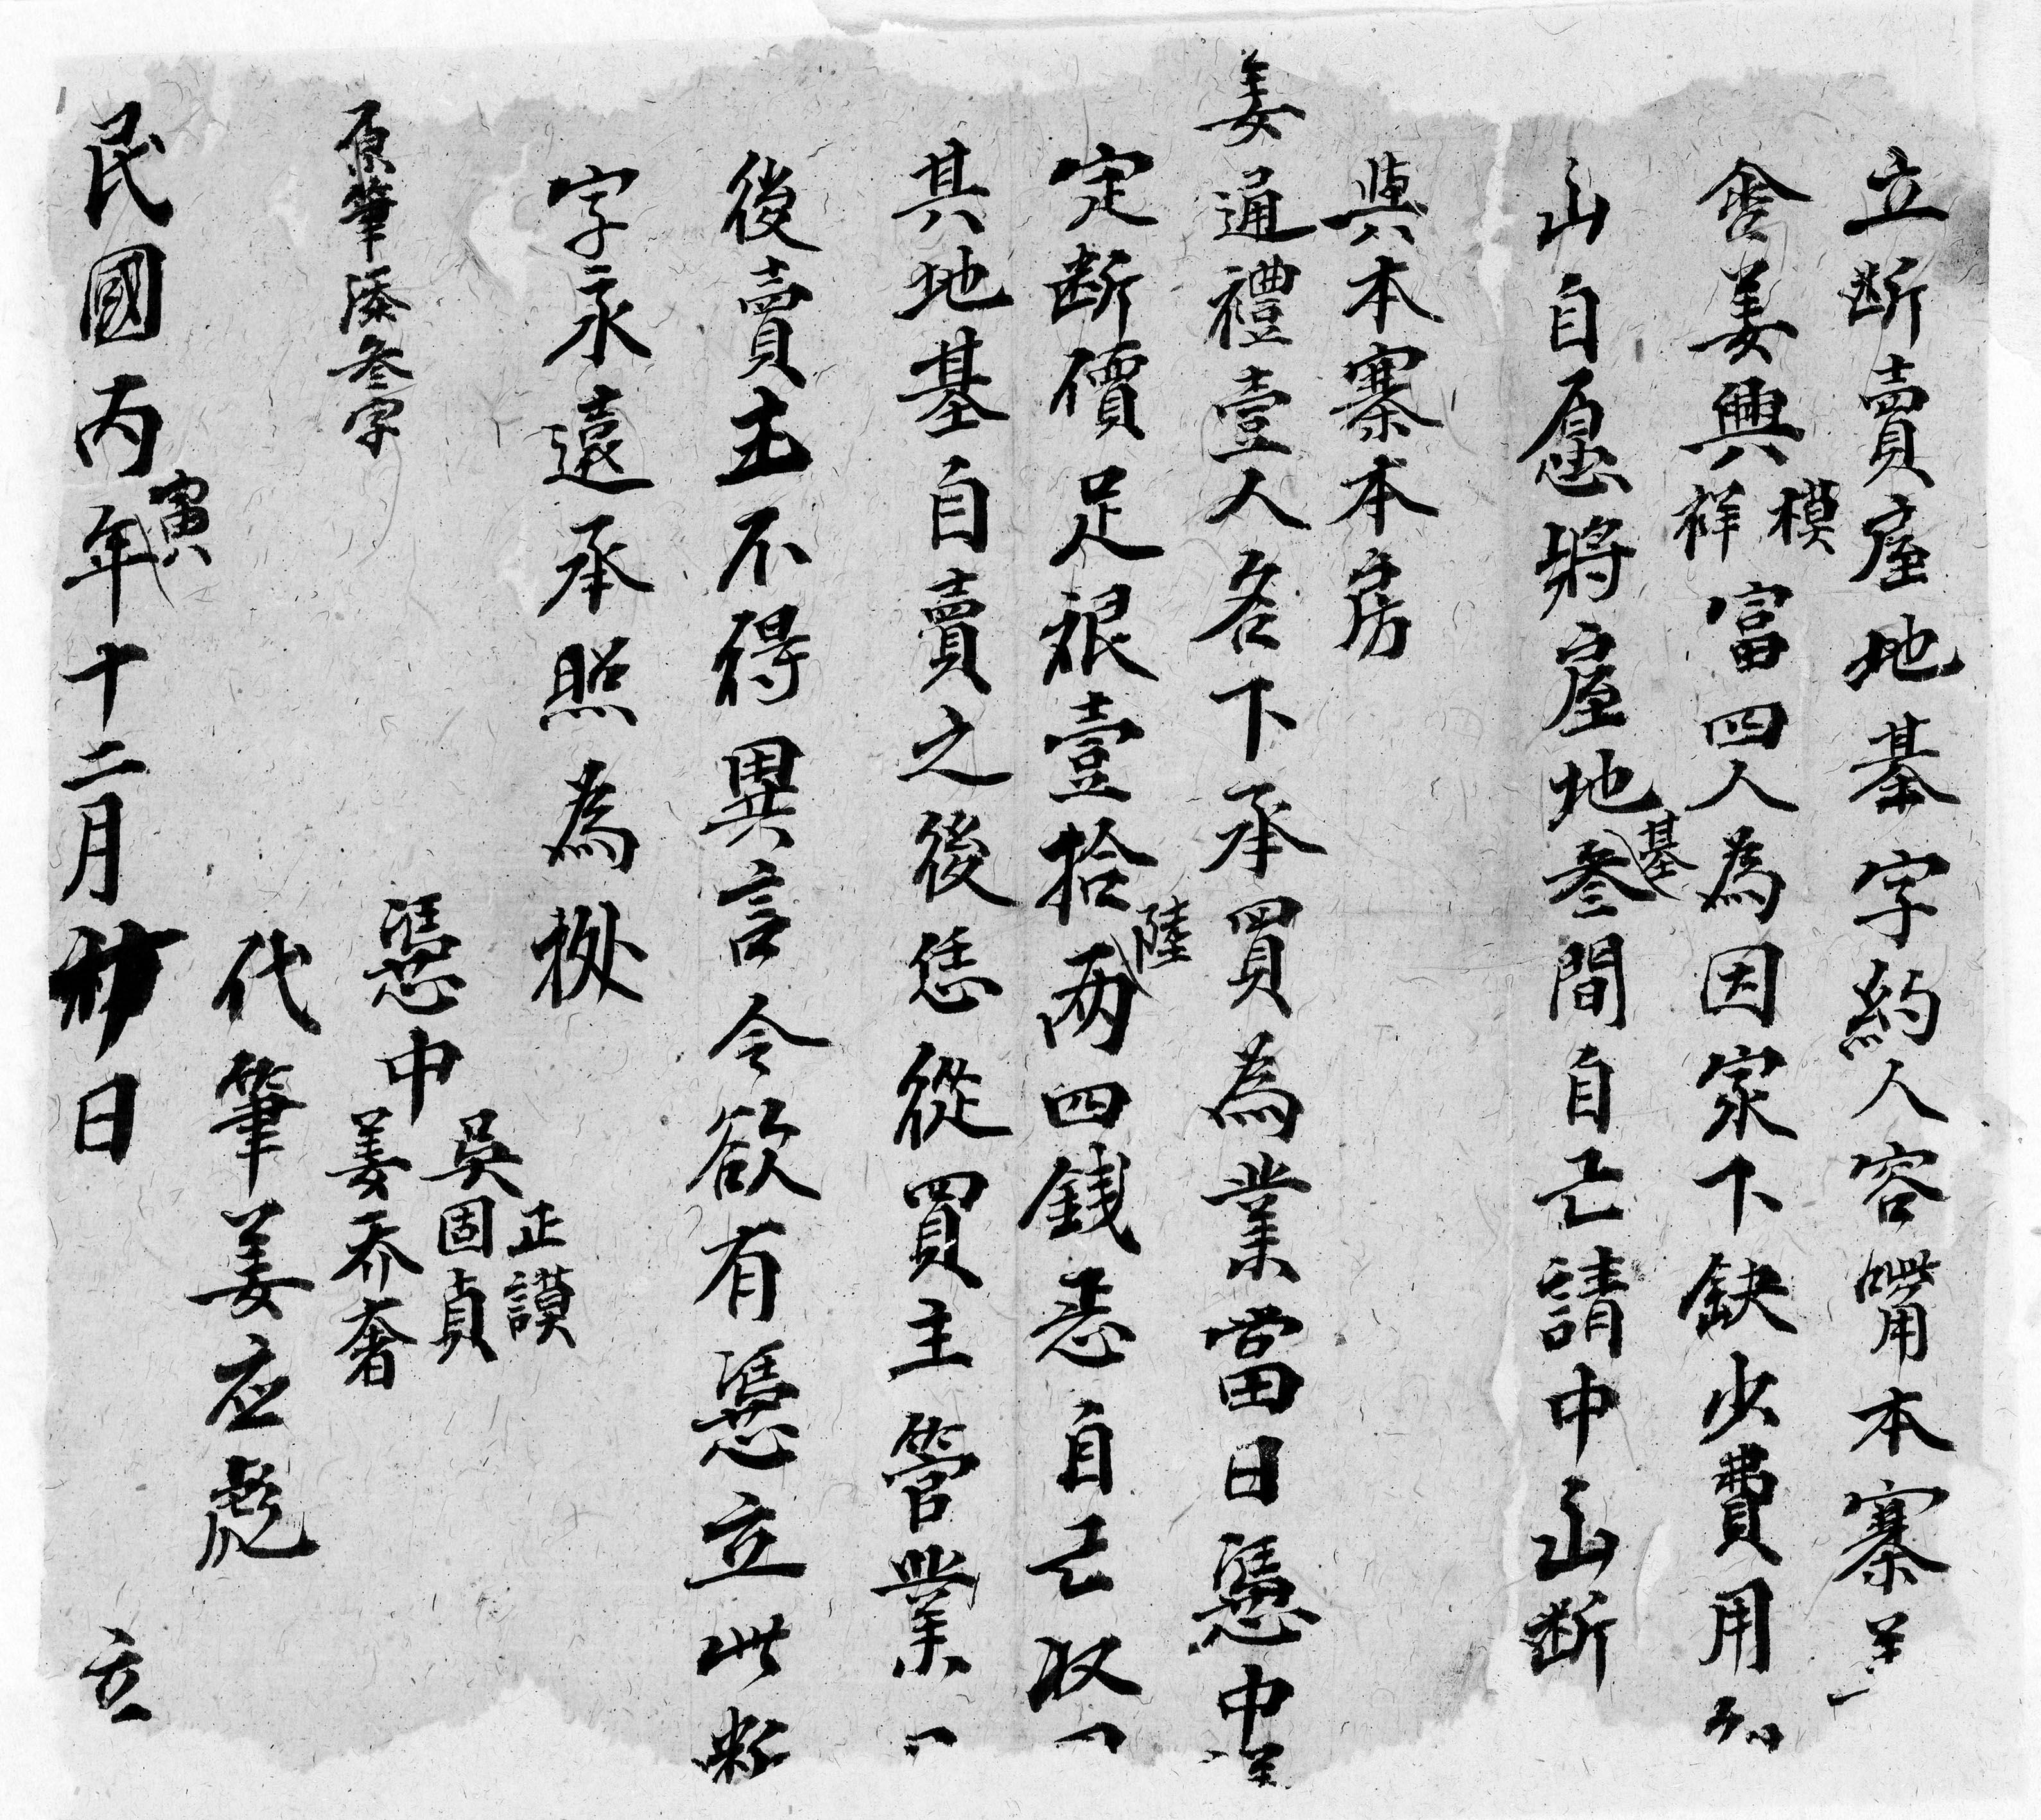 立断賣㞐地基字約人容嘴本寨姜
金姜興模祥富四人為因家下缺少費用
山自愿將㞐地基叁間自己請中山断
與本寨本房
姜通禮壹人名下承買為業當日憑中
定断價足銀壹拾陸兩四錢悉自己収
其地基自賣之後恁從買主管業
後賣主不得異言今欲有憑立此断
字永遠承照為拠
憑中吳正謨固貞姜乔奢
原筆添叁字
代筆姜应彪
民國丙寅年十二月初日立